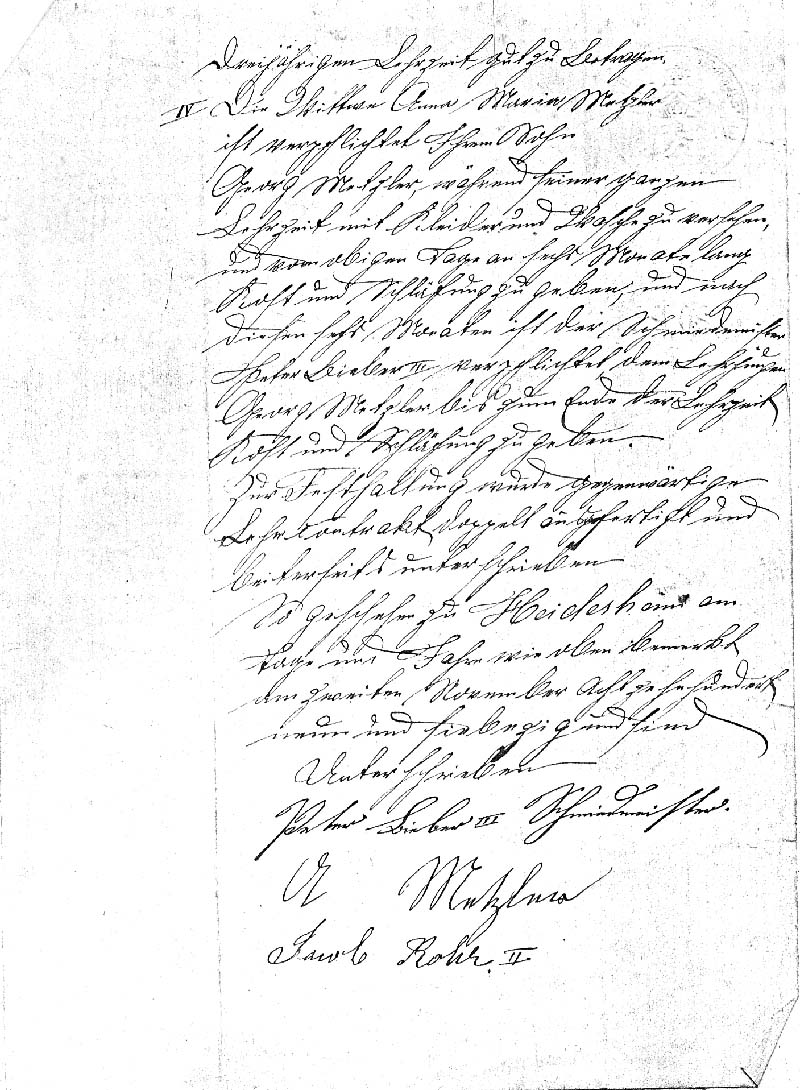 dreijährigen Lehrzeit gut zu Betragen.
IV Die Wittwe Anna Maria Metzler
ist verpflichtet Ihrem Sohn
Georg Metzler, während seiner ganzen
Lehrzeit mit Kleider und Wasche zu versehen,
und vom obigen Tage an sechs Monate lang
Kost und Schläfung zu geben, und nach
diesen sechs Monaten ist der Schmiedmeister
Peter Bieber III verpflichtet dem Lehrjungen
Georg Metzler bis zum Ende der Lehrzeit
Kost und Schläfung zu geben.
Zur Festhaltung wurde gegenwärtige
Lehrcontrakt doppelt ausgefertigt und
beiterseits unterschrieben
So geschehen zu Heidesheim am
Tage und Jahre wie oben bemerkt
am zweiten November Achtzehnhundert
neun und siebezig und sind
Unterschrieben
Peter Bieber III Schmiedmeister.
A Metzler
Jacob Rohr. II